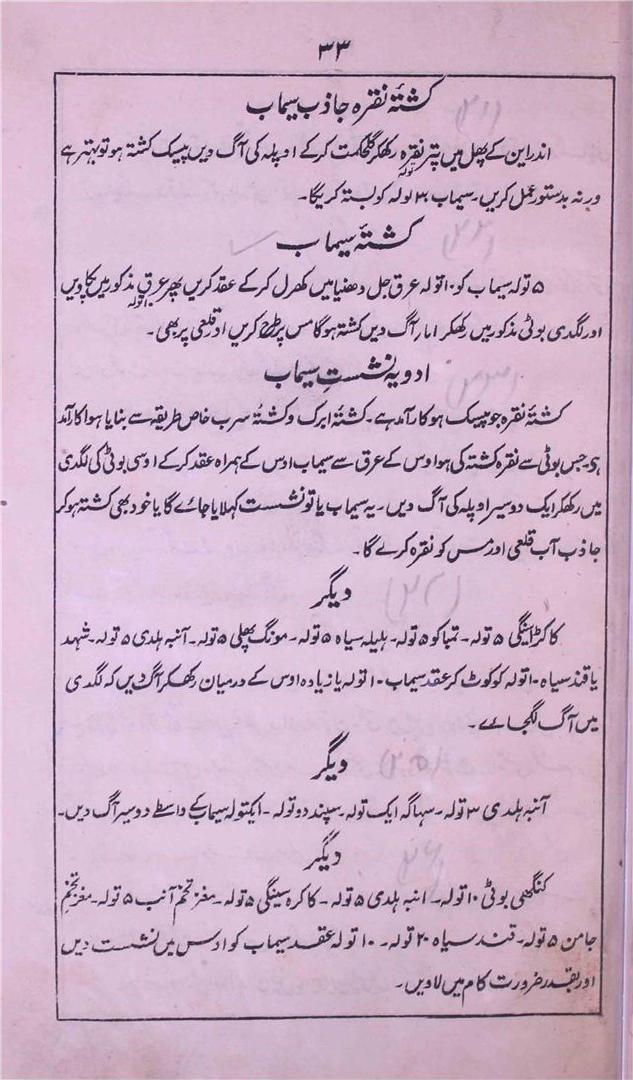 ۳۳
کشتۂ نقرہ جاذب سیماب
اندراین کے پھل میں پترنقرہ تولہ رکھکر گلحکمت کرکے ا وپلہ کی آگ دیں پیسک کشتہ ہو تو بہتر ہے
ورنہ بدستور عمل کریں۔ سیماب ۳ تولہ کو بستہ کریگا۔
کشتۂ سیماب
۵ تولہ سیماب کو ۱۰ تولہ عرق جل دھنیا میں کھرل کرکے عقد کریں پھر عرق مذکور میں پکاویں
اور لگدی بوٹی مذکور میں رکھکر آگ دیں کشتہ ہوگا مس پر طرح کریں اور قلعی پر بھی۔
ادویہ نشستِ سیماب
کشتۂ نقرہ جو پیسک ہو کارآمد ہے۔ کشتۂ ابرک و کشتۂ سرب خاص طریقہ سے بنایا ہوا کارآمد
ہی جس بوٹی سے نقرہ کشتہ کی ہو اوس کے عرق سے سیماب اوس کے ہمراہ عقد کرکے اوسی بوٹی کی لگدی
میں رکھکر ایک دو سیر اوپلہ کی آگ دیں۔ یہ سیماب یا تو نشست کہلایا جائے گا یا خود بھی کشتہ ہوکر
جاذب آب قلعی اور مس کو نقرہ کرے گا۔
دیگر
کاکڑاسینگی ۵ تولہ۔ تمباکو ۵ تولہ۔ ہلیلہ سیاہ ۵ تولہ۔ مونگ پھلی ۵ تولہ۔ آنبہ ہلدی ۵ تولہ۔ شہد
یا قند سیاہ ۱۰ تولہ کو کوٹ کر عقد سیماب ۱۰ تولہ یا زیادہ اوس کے درمیان رکھکر آگ دیں کہ لگدی
میں آگ لگجاے۔
دیگر
آنبہ ہلدی ۳ تولہ۔ سہاگہ ایک تولہ۔ سپند دو تولہ۔ ایکتولہ سیماب کے واسطے دو سیر آگ دیں۔
دیگر
کنگھی بوٹی ۱۰ تولہ۔ انبہ ہلدی ۵ تولہ۔ کاکرہ سینگی ۵ تولہ۔ مغز تخم آنب ۵ تولہ۔ مغز تخم
جامن ۵ تولہ۔ قند سیاہ ۲۰ تولہ۔ ۱۰ تولہ عقد سیماب کو اوس میں نشست دیں
اور بقدر ضرورت کام میں لاویں۔